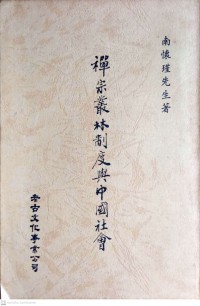 南懷瑾先生著
禪宗叢林制度與中國社會
老古文化事業公司